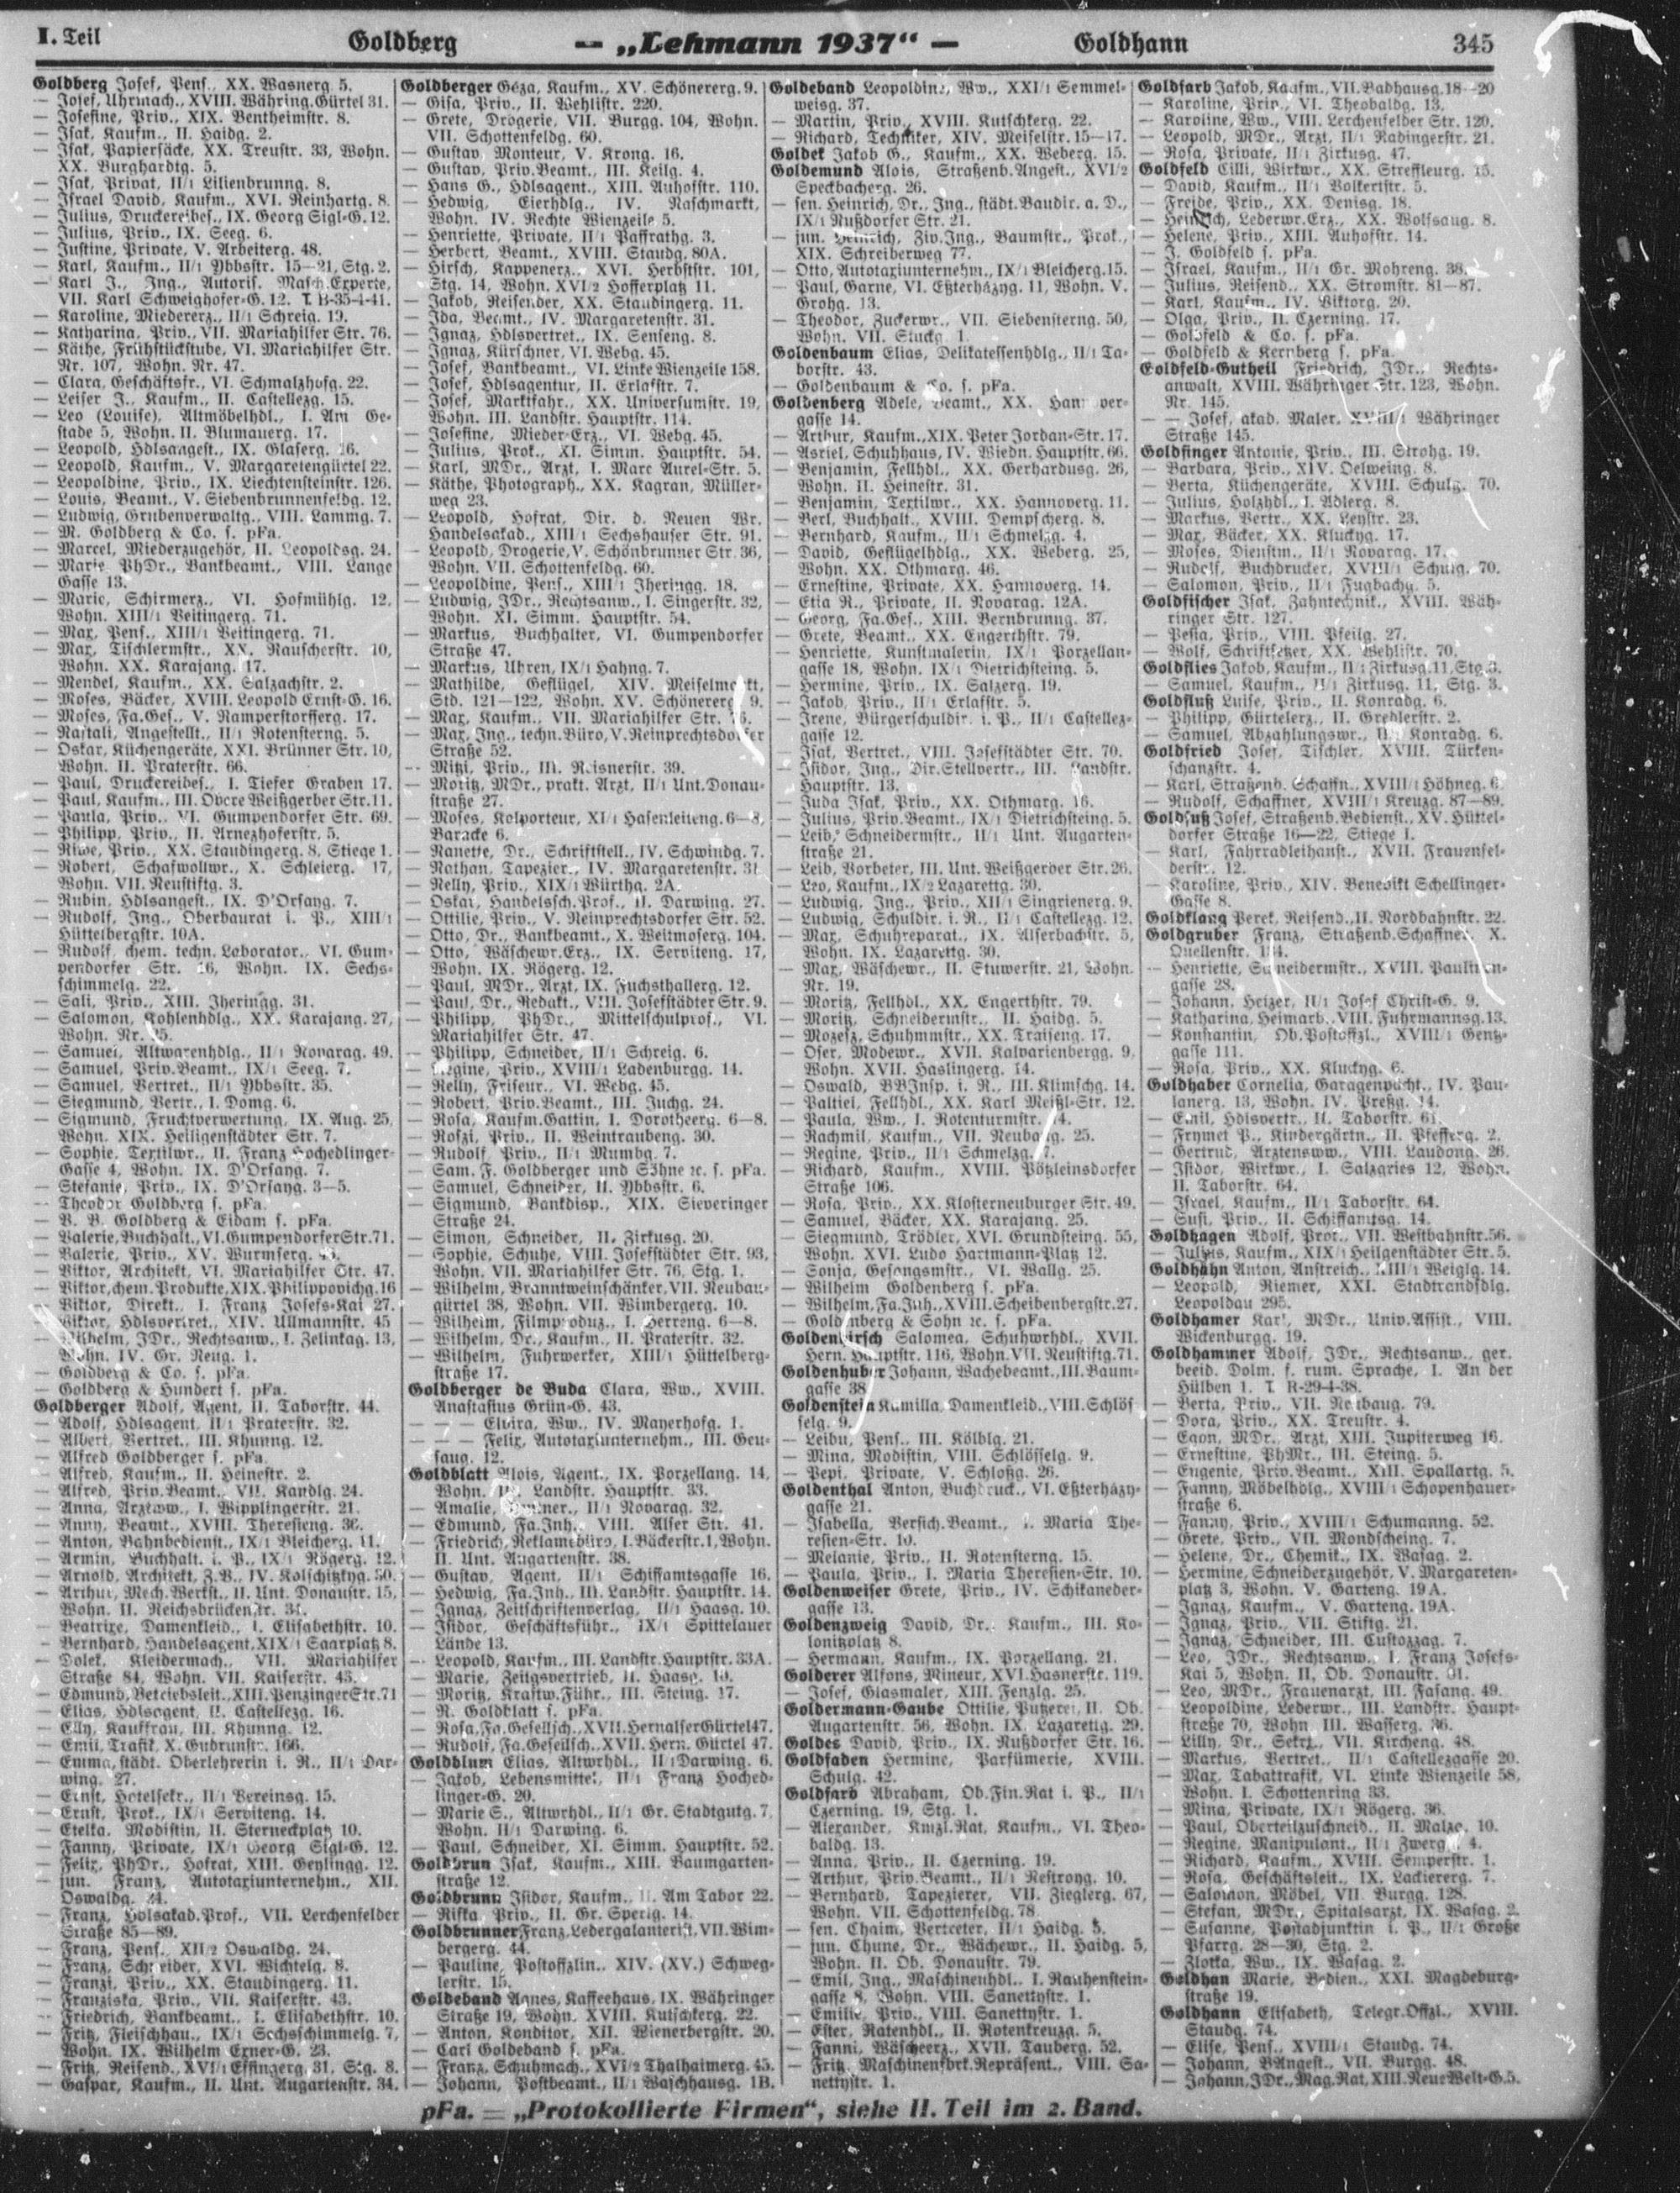 I. Teil Goldberg — „Lehmann 1937“ — Goldhann 345
Goldberg Josef, Pens., XX. Wasnerg. 5.
— Josef, Uhrmach., XVIII. Währing.Gürtel 31.
— Josefine, Priv., XIX. Bentheimstr. 8.
— Isak, Kaufm., II. Haidg. 2.
— Isak, Papiersäcke, XX. Treustr. 33, Wohn.
XX. Burghardtg. 5.
— Isak, Privat, II/1 Lilienbrunng. 8.
— Israel David, Kaufm., XVI. Reinhartg. 8.
— Julius, Druckereibes., IX. Georg Sigl-G. 12.
— Julius, Priv., IX. Seeg. 6.
— Justine, Private, V. Arbeiterg. 48.
— Karl, Kaufm., II/1 Ybbsstr. 15—21, Stg. 2.
— Karl J., Ing., Autoris. Masch.Experte,
VII. Karl Schweighofer-G. 12. T. B-35-4-41.
— Karoline, Miedererz., II/1 Schreig. 19.
— Katharina, Priv., VII. Mariahilfer Str. 76.
— Käthe, Frühstückstube, VI. Mariahilfer Str.
Nr. 107, Wohn. Nr. 47.
— Clara, Geschäftsfr., VI. Schmalzhofg. 22.
— Leiser J., Kaufm., II. Castellezg. 15.
— Leo (Louise), Altmöbelhdl., I. Am Ge-
stade 5, Wohn. II. Blumauerg. 17.
— Leopold, Hdlsangest., IX. Glaserg. 16.
— Leopold, Kaufm., V. Margaretengürtel 22.
— Leopoldine, Priv., IX. Liechtensteinstr. 126.
— Louis, Beamt., V. Siebenbrunnenfeldg. 12.
— Ludwig, Grubenverwaltg., VIII. Lammg. 7.
— M. Goldberg & Co. s. pFa.
— Marcel, Miederzugehör, II. Leopoldsg. 24.
— Marie PhDr., Bankbeamt., VIII. Lange
Gasse 13.
— Marie, Schirmerz., VI. Hofmühlg. 12,
Wohn. XIII/1 Veitingerg. 71.
— Max, Pens., XIII/1 Veitingerg. 71.
— Max, Tischlermstr., XX. Rauscherstr. 10,
Wohn. XX. Karajang. 17.
— Mendel, Kaufm., XX. Salzachstr. 2.
— Moses, Bäcker, XVIII. Leopold Ernst-G. 16.
— Moses, Fa.Ges., V. Ramperstorfferg. 17.
— Naftali, Angestellt., II/1 Rotensterng. 5.
— Oskar, Küchengeräte, XXI. Brünner Str. 10,
Wohn. II. Praterstr. 66.
— Paul, Druckereibes., I. Tiefer Graben 17.
— Paul, Kaufm., III. Obere Weißgerber Str. 11.
— Paula, Priv., VI. Gumpendorfer Str. 69.
— Philipp, Priv., II. Arnezhoferstr. 5.
— Priv., XX. Staudingerg. 8, Stiege 1.
— Robert, Schafwollwr., X. Schleierg. 17,
Wohn. VII. Neustiftg. 3.
— Rubin, Hdlsangest., IX. D'Orsayg. 7.
— Rudolf, Ing., Oberbaurat i. P., XIII/1
Hüttelbergstr. 10A.
— Rudolf, chem. techn. Laborator., VI. Gum-
pendorfer Str. 16, Wohn. IX. Sechs-
schimmelg. 22.
— Sali, Priv., XIII. Jheringg. 31.
— Salomon, Kohlenhdlg., XX. Karajang. 27,
Wohn. Nr. 25.
— Samuel, Altwarenhdlg., II/1 Novarag. 49.
— Samuel, Priv.Beamt., IX/1 Seeg. 7.
— Samuel, Vertret., II/1 Ybbsstr. 35.
— Siegmund, Vertr., I. Domg. 6.
— Sigmund, Fruchtverwertung, IX. Aug. 25,
Wohn. XIX. Heiligenstädter Str. 7.
— Sophie, Textilwr., II. Franz Hochedlinger-
Gasse 4, Wohn. IX. D'Orsayg. 7.
— Stefanie, Priv., IX. D'Orsayg. 3—5.
— Theodor Goldberg s. pFa.
— V. B. Goldberg & Eidam s. pFa.
— Valerie, Buchhalt., VI. Gumpendorfer Str. 71.
— Valerie, Priv., XV. Wurmserg.
— Viktor, Architekt, VI. Mariahilfer Str. 47.
— Viktor, chem. Produkte, XIX. Philippovichg. 16
— Viktor, Direkt., I. Franz Josefs-Kai 27.
— Viktor, Hdlsvertret., XIV. Ullmannstr. 45
— Wilhelm, JDr., Rechtsanw., I. Zelinkag. 13,
Wohn. IV. Gr. Neug. 1.
— Goldberg & Co. s. pFa.
— Goldberg & Hundert s. pFa.
Goldberger Adolf, Agent, II. Taborstr. 44.
— Adolf, Hdlsagent, II/1 Praterstr. 32.
— Albert, Vertret., III. Khunng. 12.
— Alfred Goldberger s. pFa.
— Alfred, Kaufm., II. Heinestr. 2.
— Alfred, Priv.Beamt., VII. Kandlg. 24.
— Anna, Arztww., I. Wipplingerstr. 21.
— Anny, Beamt., XVIII. Theresieng. 36.
— Anton, Bahnbedienst., IX/1 Bleicherg. 11.
— Armin, Buchhalt. i. P., IX/1 Rögerg. 12.
— Arnold, Architekt, Z.V., IV. Kolschitzkyg. 30.
— Arthur, Mech.Werkst., II. Unt. Donaustr. 15,
Wohn. II. Reichsbrückenstr. 34.
— Beatrixe, Damenkleid., I. Elisabethstr. 10.
— Bernhard, Handelsagent, XIX/1 Saarplatz 8.
— Dolek, Kleidermach., VII. Mariahilfer
Straße 84, Wohn. VII. Kaiserstr. 43.
— Edmund, Betriebsleit., XIII. Penzinger Str. 71
— Elias, Hdlsagent, II. Castellezg. 16.
— Elly, Kauffrau, III. Khunng. 12.
— Emil, Trafik, X. Gudrunstr. 166.
— Emma, städt. Oberlehrerin i. R., II/1 Dar-
wing. 27.
— Ernst, Hotelsekr., II/1 Vereinsg. 15.
— Ernst, Prok., IX/1 Serviteng. 14.
— Etelka, Modistin, II. Sterneckplatz 10.
— Fanny, Private, IX/1 Georg Sigl-G. 12.
— Felix, PhDr., Hofrat, XIII. Geylingg. 12.
— jun. Franz, Autotaxiunternehm., XII.
Oswaldg. 24.
— Franz, Hdlsakad.Prof., VII. Lerchenfelder
Straße 85—89.
— Franz, Pens., XII/2 Oswaldg. 24.
— Franz, Schneider, XVI. Wichtelg. 8.
— Franzi, Priv., XX. Staudingerg. 11.
— Franziska, Priv., VII. Kaiserstr. 43.
— Friedrich, Bankbeamt., I. Elisabethstr. 10.
— Fritz, Fleischhau., IX/1 Sechsschimmelg. 7,
Wohn. IX. Wilhelm Exner-G. 23.
— Fritz, Reisend., XVI/1 Effingerg. 31, Stg. 8.
— Gaspar, Kaufm., II. Unt. Augartenstr. 34.
Goldberger Géza, Kaufm., XV. Schönererg. 9.
— Gisa, Priv., II. Wehlistr. 220.
— Grete, Drogerie, VII. Burgg. 104, Wohn.
VII. Schottenfeldg. 60.
— Gustav, Monteur, V. Krong. 16.
— Gustav, Priv.Beamt., III. Keilg. 4.
— Hans G., Hdlsagent., XIII. Auhofstr. 110.
— Hedwig, Eierhdlg., IV. Naschmarkt,
Wohn. IV. Rechte Wienzeile 5.
— Henriette, Private, II/1 Paffrathg. 3.
— Herbert, Beamt., XVIII. Staudg. 80A.
— Hirsch, Kappenerz., XVI. Herbststr. 101,
Stg. 14, Wohn. XVI/2 Hofferplatz 11.
— Jakob, Reisender, XX. Staudingerg. 11.
— Ida, Beamt., IV. Margaretenstr. 31.
— Ignaz, Hdlsvertret., IX. Senseng. 8.
— Ignaz, Kürschner, VI. Webg. 45.
— Josef, Bankbeamt., VI. Linke Wienzeile 158.
— Josef, Hdlsagentur, II. Erlafstr. 7.
— Josef, Marktfahr., XX. Universumstr. 19,
Wohn. III. Landstr. Hauptstr. 114.
— Josefine, Mieder-Erz., VI. Webg. 45.
— Julius, Prok., XI. Simm. Hauptstr. 54.
— Karl, MDr., Arzt, I. Marc Aurel-Str. 5.
— Käthe, Photograph., XX. Kagran, Müller-
weg 23.
— Leopold, Hofrat, Dir. d. Neuen Wr.
Handelsakad., XIII/1 Sechshauser Str. 91.
— Leopold, Drogerie, V. Schönbrunner Str. 36,
Wohn. VII. Schottenfeldg. 60.
— Leopoldine, Pens., XIII/1 Jheringg. 18.
— Ludwig, JDr., Rechtsanw., I. Singerstr. 32,
Wohn. XI. Simm. Hauptstr. 54.
— Markus, Buchhalter, VI. Gumpendorfer
Straße 47.
— Markus, Uhren, IX/1 Hahng. 7.
— Mathilde, Geflügel, XIV. Meiselmarkt,
Std. 121—122, Wohn. XV. Schönererg. 9.
— Max, Kaufm., VII. Mariahilfer Str. 76.
— Max, Ing., techn.Büro, V. Reinprechtsdorfer
Straße 52.
— Mitzi, Priv., III. Reisnerstr. 39.
— Moritz, MDr., prakt. Arzt, II/1 Unt.Donau-
straße 27.
— Moses, Kolporteur, XI/1 Hasenleiteng. 6—8,
Baracke 6.
— Nanette, Dr., Schriftstell., IV. Schwindg. 7.
— Nathan, Tapezier., IV. Margaretenstr. 31
— Nelly, Priv., XIX/1 Würthg. 2A.
— Oskar, Handelssch.Prof., II. Darwing. 27.
— Ottilie, Priv., V. Reinprechtsdorfer Str. 52.
— Otto, Dr., Bankbeamt., X. Weitmoserg. 104.
— Otto, Wäschewr.Erz., IX. Serviteng. 17,
Wohn. IX. Rögerg. 12.
— Paul, MDr., Arzt, IX. Fuchsthallerg. 12.
— Paul, Dr., Redakt., VIII. Josefstädter Str. 9.
— Philipp, PhDr., Mittelschulprof., VI.
Mariahilfer Str. 47.
— Philipp, Schneider, II/1 Schreig. 6.
— Regine, Priv., XVIII/1 Ladenburgg. 14.
— Relly, Friseur., VI. Webg. 45.
— Robert, Priv.Beamt., III. Juchg. 24.
— Rosa, Kaufm.Gattin, I. Dorotheerg. 6—8.
— Roszi, Priv., II. Weintraubeng. 30.
— Rudolf, Priv., II/1 Mumbg. 7.
— Sam. F. Goldberger und Söhne ꝛc. s. pFa.
— Samuel, Schneider, II. Ybbsstr. 6.
— Sigmund, Bankdisp., XIX. Sieveringer
Straße 24.
— Simon, Schneider, II. Zirkusg. 20.
— Sophie, Schuhe, VIII. Josefstädter Str. 93,
Wohn. VII. Mariahilfer Str. 76, Stg. 1.
— Wilhelm, Branntweinschänker, VII. Neubau-
gürtel 38, Wohn. VII. Wimbergerg. 10.
— Wilhelm, Filmproduz., I. Herreng. 6—8.
— Wilhelm, Dr., Kaufm., II. Praterstr. 32.
— Wilhelm, Fuhrwerker, XIII/1 Hüttelberg-
straße 17.
Goldberger de Buda Clara, Ww., XVIII.
Anastasius Grün-G. 43.
— — — Elvira, Ww., IV. Mayerhofg. 1.
— — — Felix, Autotaxiunternehm., III. Geu-
saug. 12.
Goldblatt Alois, Agent., IX. Porzellang. 14,
Wohn. III. Landstr. Hauptstr. 33.
— Amalie, II/1 Novarag. 32.
— Edmund, Fa.Inh., VIII. Alser Str. 41.
— Friedrich, Reklamebüro, I. Bäckerstr. 1, Wohn.
II. Unt. Augartenstr. 38.
— Gustav, Agent, II/1 Schiffamtsgasse 16.
— Hedwig, Fa.Inh., III. Landstr. Hauptstr. 14.
— Ignaz, Zeitschriftenverlag, II/1 Haasg. 10.
— Isidor, Geschäftsführ., IX/1 Spittelauer
Lände 13.
— Leopold, Kaufm., III. Landstr.Hauptstr. 33A.
— Marie, Zeitgsvertrieb, II. Haasg. 10.
— Moritz, Kraftw.Führ., III. Steing. 17.
— R. Goldblatt s. pFa.
— Rosa, Fa.Gesellsch., XVII. Hernalser Gürtel 47.
— Rudolf, Fa.Gesellsch., XVII. Hern. Gürtel 47.
Goldblum Elias, Altwrhdl., II/1 Darwing. 6.
— Jakob, Lebensmittel, II/1 Franz Hoched-
linger-G. 20.
— Marie S., Altwrhdl., II/1 Gr. Stadtgutg. 7,
Wohn. II/1 Darwing. 6.
— Paul, Schneider, XI. Simm. Hauptstr. 52.
Goldbrun Isak, Kaufm., XIII. Baumgarten-
straße 12.
Goldbrunn Isidor, Kaufm., II. Am Tabor 22.
— Rifka, Priv., II. Gr. Sperlg. 14.
Goldbrunner Franz, Ledergalanterist, VII. Wim-
bergerg. 44.
— Pauline, Postoffzlin., XIV. (XV.) Schweg-
lerstr. 15.
Goldeband Agnes, Kaffeehaus, IX. Währinger
Straße 19, Wohn. XVIII. Kutschkerg. 22.
— Anton, Konditor, XII. Wienerbergstr. 20.
— Carl Goldeband s. pFa.
— Franz, Schuhmach., XVI/2 Thalhaimerg. 45.
— Johann, Postbeamt., II/1 Waschhausg. 1B.
Goldeband Leopoldine, Ww., XXI/1 Semmel-
weisg. 37.
— Martin, Priv., XVIII. Kutschkerg. 22.
— Richard, Techniker, XIV. Meiselstr. 15—17.
Goldek Jakob G., Kaufm., XX. Weberg. 15.
Goldemund Alois, Straßenb.Angest., XVI/2
Speckbacherg. 26.
— sen. Heinrich, Dr., Ing., städt.Baudir. a. D.,
IX/1 Nußdorfer Str. 21.
— jun. Heinrich, Ziv.Ing., Baumstr., Prok.,
XIX. Schreiberweg 77.
— Otto, Autotaxiunternehm., IX/1 Bleicherg. 15.
— Paul, Garne, VI. Eßterházyg. 11, Wohn. V.
Grohg. 13.
— Theodor, Zuckerwr., VII. Siebensterng. 50,
Wohn. VII. Stuckg. 1.
Goldenbaum Elias, Delikatessenhdlg., II/1 Ta-
borstr. 43.
— Goldenbaum & Co. s. pFa.
Goldenberg Adele, Beamt., XX. Hannover-
gasse 14.
— Arthur, Kaufm., XIX. Peter Jordan-Str. 17.
— Asriel, Schuhhaus, IV. Wiedn. Hauptstr. 66.
— Benjamin, Fellhdl., XX. Gerhardusg. 26,
Wohn. II. Heinestr. 31.
— Benjamin, Textilwr., XX. Hannoverg. 11.
— Berl, Buchhalt., XVIII. Dempscherg. 8.
— Bernhard, Kaufm., II/1 Schmelzg. 4.
— David, Geflügelhdlg., XX. Weberg. 25,
Wohn. XX. Othmarg. 46.
— Ernestine, Private, XX. Hannoverg. 14.
— Etia R., Private, II. Novarag. 12A.
— Georg, Fa.Ges., XIII. Bernbrunng. 37.
— Grete, Beamt., XX. Engerthstr. 79.
— Henriette, Kunstmalerin, IX/1 Porzellan-
gasse 18, Wohn. IX/1 Dietrichsteing. 5.
— Hermine, Priv., IX. Salzerg. 19.
— Jakob, Priv., II/1 Erlafstr. 5.
— Irene, Bürgerschuldir. i. P., II/1 Castellez-
gasse 12.
— Isak, Vertret., VIII. Josefstädter Str. 70.
— Isidor, Ing., Dir.Stellvertr., III. Landstr.
Hauptstr. 13.
— Juda Isak, Priv., XX. Othmarg. 16.
— Julius, Priv.Beamt., IX/1 Dietrichsteing. 5.
— Leib, Schneidermstr., II/1 Unt. Augarten-
straße 21.
— Leib, Vorbeter, III. Unt. Weißgerber Str. 26.
— Leo, Kaufm., IX/2 Lazarettg. 30.
— Ludwig, Ing., Priv., XII/1 Singrienerg. 9.
— Ludwig, Schuldir. i. R., II/1 Castellezg. 12.
— Max, Schuhreparat., IX. Alserbachstr. 5,
Wohn. IX. Lazarettg. 30.
— Max, Wäschewr., II. Stuwerstr. 21, Wohn.
Nr. 19.
— Moritz, Fellhdl., XX. Engerthstr. 79.
— Moritz, Schneidermstr., II. Haidg. 5.
— Mozesz, Schuhmstr., XX. Traiseng. 17.
— Oser, Modewr., XVII. Kalvarienbergg. 9,
Wohn. XVII. Haslingerg. 14.
— Oswald, BBInsp. i. R., III. Klimschg. 14.
— Paltiel, Fellhdl., XX. Karl Meißl-Str. 12.
— Paula, Ww., I. Rotenturmstr. 14.
— Rachmil, Kaufm., VII. Neubaug. 25.
— Regine, Priv., II/1 Schmelzg. 7.
— Richard, Kaufm., XVIII. Pötzleinsdorfer
Straße 106.
— Rosa, Priv., XX. Klosterneuburger Str. 49.
— Samuel, Bäcker, XX. Karajang. 25.
— Siegmund, Trödler, XVI. Grundsteing. 55,
Wohn. XVI. Ludo Hartmann-Platz 12.
— Sonja, Gesangsmstr., VI. Wallg. 25.
— Wilhelm Goldenberg s. pFa.
— Wilhelm, Fa.Inh., XVIII. Scheibenbergstr. 27.
— Goldenberg & Sohn ꝛc. s. pFa.
Goldenhirsch Salomea, Schuhwrhdl., XVII.
Hern. Hauptstr. 116, Wohn. VII. Neustiftg. 71.
Goldenhuber Johann, Wachebeamt., III. Baum-
gasse 38
Goldenstein Kamilla, Damenkleid., VIII. Schlös-
selg. 9.
— Leibu, Pens., III. Kölblg. 21.
— Mina, Modistin, VIII. Schlösselg. 9.
— Pepi, Private, V. Schloßg. 26.
Goldenthal Anton, Buchdruck., VI. Eßterházy-
gasse 21.
— Isabella, Versich.Beamt., I. Maria The-
resien-Str. 10.
— Melanie, Priv., II. Rotensterng. 15.
— Paula, Priv., I. Maria Theresien-Str. 10.
Goldenweiser Grete, Priv., IV. Schikaneder-
gasse 13.
Goldenzweig David, Dr., Kaufm., III. Ko-
lonitzplatz 8.
— Hermann, Kaufm., IX. Porzellang. 21.
Golderer Alfons, Mineur, XVI. Hasnerstr. 119.
— Josef, Glasmaler, XIII. Fenzlg. 25.
Goldermann-Gaube Ottilie, Putzerei, II. Ob.
Augartenstr. 56, Wohn. IX. Lazarettg. 29.
Goldes David, Priv., IX. Nußdorfer Str. 16.
Goldfaden Hermine, Parfümerie, XVIII.
Schulg. 42.
Goldfarb Abraham, Ob.Fin.Rat i. P., II/1
Czerning. 19, Stg. 1.
— Alexander, Kmzl.Rat, Kaufm., VI. Theo-
baldg. 13.
— Anna, Priv., II. Czerning. 19.
— Arthur, Priv.Beamt., II/1 Nestroyg. 10.
— Bernhard, Tapezierer, VII. Zieglerg. 67,
Wohn. VII. Schottenfeldg. 78
— sen. Chaim, Vertreter, II/1 Haidg. 5.
— jun. Chune, Dr., Wächewr., II. Haidg. 5,
Wohn. II. Ob. Donaustr. 79.
— Emil, Ing., Maschinenhdl., I. Rauhenstein-
gasse 8, Wohn. VIII. Sanettystr. 1.
— Emilie, Priv., VIII. Sanettystr. 1.
— Ester, Ratenhdl., II. Rotenkreuzg. 5.
— Fanni, Wäscheerz., XVII. Tauberg. 52.
— Fritz, Maschinenfbrk.Repräsent., VIII. Sa-
nettystr. 1.
Goldfarb Jakob, Kaufm., VII. Badhausg. 18—20
— Karoline, Priv., VI. Theobaldg. 13.
— Karoline, Ww., VIII. Lerchenfelder Str. 120.
— Leopold, MDr., Arzt, II/1 Radingerstr. 21.
— Rosa, Private, II/1 Zirkusg. 47.
Goldfeld Cilli, Wirkwr., XX. Streffleurg. 15.
— David, Kaufm., II/1 Volkertstr. 5.
— Freide, Priv., XX. Denisg. 18.
— Heinrich, Lederwr.Erz., XX. Wolfsaug. 8.
— Helene, Priv., XIII. Auhofstr. 14.
— J. Goldfeld s. pFa.
— Israel, Kaufm., II/1 Gr. Mohreng. 38.
— Julius, Reisend., XX. Stromstr. 81—87.
— Karl, Kaufm., IV. Viktorg. 20.
— Olga, Priv., II. Czerning. 17.
— Goldfeld & Co. s. pFa.
— Goldfeld & Kernberg s. pFa.
Goldfeld-Gutheil Friedrich, JDr., Rechts-
anwalt, XVIII. Währinger Str. 123, Wohn.
Nr. 145.
— — Josef, akad. Maler, XVIII/1 Währinger
Straße 145.
Goldfinger Antonie, Priv., III. Strohg. 19.
— Barbara, Priv., XIV. Oelweing. 8.
— Berta, Küchengeräte, XVIII. Schulg. 70.
— Julius, Holzhdl., I. Adlerg. 8.
— Markus, Vertr., XX. Leystr. 23.
— Max, Bäcker, XX. Kluckyg. 17.
— Moses, Dienstm., II/1 Novarag. 17.
— Rudolf, Buchdrucker, XVIII/1 Schulg. 70.
— Salomon, Priv., II/1 Fugbachg. 5.
Goldfischer Isak, Zahntechnik., XVIII. Wäh-
ringer Str. 127.
— Pesia, Priv., VIII. Pfeilg. 27.
— Wolf, Schriftsetzer, XX. Wehlistr. 70.
Goldflies Jakob, Kaufm., II/1 Zirkusg. 11, Stg. 3.
— Samuel, Kaufm., II/1 Zirkusg. 11, Stg. 3.
Goldfluß Luise, Priv., II. Konradg. 6.
— Philipp, Gürtelerz., II. Gredlerstr. 2.
— Samuel, Abzahlungswr., II. Konradg. 6.
Goldfried Josef, Tischler, XVIII. Türken-
schanzstr. 4.
— Karl, Straßenb. Schaffn., XVIII/1 Höhneg. 6
— Rudolf, Schaffner, XVIII/1 Kreuzg. 87—89.
Goldfuß Josef, Straßenb.Bedienst., XV. Hüttel-
dorfer Straße 16—22, Stiege 1.
— Karl, Fahrradleihanst., XVII. Frauenfel-
derstr. 12.
— Karoline, Priv., XIV. Benedikt Schellinger-
Gasse 8.
Goldklang Perek, Reisend., II. Nordbahnstr. 22.
Goldgruber Franz, Straßenb.Schaffner, X.
Quellenstr. 184.
— Henriette, Schneidermstr., XVIII. Paulinen-
gasse 28.
— Johann, Heizer, II/1 Josef Christ-G. 9.
— Katharina, Heimarb., VIII. Fuhrmannsg. 13.
— Konstantin, Ob.Postoffzl., XVIII/1 Gentz-
gasse 111.
— Rosa, Priv., XX. Kluckyg. 6.
Goldhaber Cornelia, Garagenpacht., IV. Pau-
lanerg. 13, Wohn. IV. Preßg. 14.
— Emil, Hdlsvertr., II. Taborstr. 61.
— Frymet P., Kindergärtn., II. Pfefferg. 2.
— Gertrud, Arztensww., VIII. Laudong. 26.
— Isidor, Wirkwr., I. Salzgries 12, Wohn.
II. Taborstr. 64.
— Israel, Kaufm., II/1 Taborstr. 64.
— Susi, Priv., II. Schiffamtsg. 14.
Goldhagen Adolf, Prok., VII. Westbahnstr. 56.
— Julius, Kaufm., XIX/1 Heilgenstädter Str. 5.
Goldhahn Anton, Anstreich., XIII/1 Weiglg. 14.
— Leopold, Riemer, XXI. Stadtrandsdlg.
Leopoldau 295.
Goldhamer Karl, MDr., Univ.Assist., VIII.
Wickenburgg. 19.
Goldhammer Adolf, JDr., Rechtsanw., ger.
beeid. Dolm. f. rum. Sprache, I. An der
Hülben 1. T. R-29-4-38.
— Berta, Priv., VII. Neubaug. 79.
— Dora, Priv., XX. Treustr. 4.
— Egon, MDr., Arzt, XIII. Jupiterweg 16.
— Ernestine, PhMr., III. Steing. 5.
— Eugenie, Priv.Beamt., XIII. Spallartg. 5.
— Fanny, Möbelhdlg., XVIII/1 Schopenhauer-
straße 6.
— Fanny, Priv., XVIII/1 Schumanng. 52.
— Grete, Priv., VII. Mondscheing. 7.
— Helene, Dr., Chemik., IX. Wasag. 2.
— Hermine, Schneiderzugehör, V. Margareten-
platz 3, Wohn. V. Garteng. 19A.
— Ignaz, Kaufm., V. Garteng. 19A.
— Ignaz, Priv., VII. Stiftg. 21.
— Ignaz, Schneider, III. Custozzag. 7.
— Leo, JDr., Rechtsanw., I. Franz Josefs-
Kai 5, Wohn. II. Ob. Donaustr. 91.
— Leo, MDr., Frauenarzt, III. Fasang. 49.
— Leopoldine, Lederwr., III. Landstr. Haupt-
straße 70, Wohn. III. Wasserg. 36.
— Lilly, Dr., Sekr., VII. Kircheng. 48.
— Markus, Vertret., II/1 Castellezgasse 20.
— Max, Tabaktrafik, VI. Linke Wienzeile 58,
Wohn. I. Schottenring 33.
— Mina, Private, IX/1 Rögerg. 36.
— Paul, Oberteilzuschneid., II. Malzg. 10.
— Regine, Manipulant., II/1 Zwergg. 4.
— Richard, Kaufm., XVIII. Semperstr. 1.
— Rosa, Geschäftsleit., IX. Lackiererg. 7.
— Salomon, Möbel, VII. Burgg. 128.
— Stefan, MDr., Spitalsarzt, IX. Wasag. 2.
— Susanne, Postadjunktin i. P., II/1 Große
Pfarrg. 28—30, Stg. 2.
— Zlotka, Ww., IX. Wasag. 2.
Goldhan Marie, Bedien., XXI. Magdeburg-
straße 19.
Goldhann Elisabeth, Telegr.Offzl., XVIII.
Staudg. 74.
— Elise, Pens., XVIII/1 Staudg. 74.
— Johann, BAngest., VII. Burgg. 48.
— Johann, JDr., Mag.Rat, XIII. Neue Welt-G. 5.
pFa. = „Protokollierte Firmen“, siehe II. Teil im 2. Band.